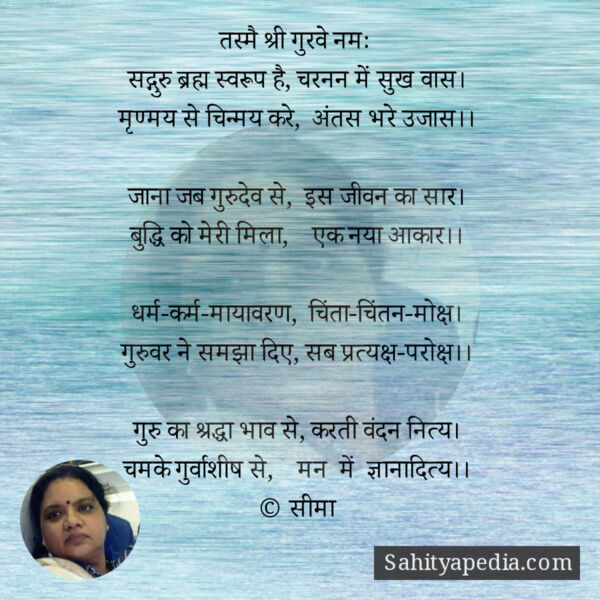 तस्मै श्री गुरवे नम:
सद्गुरु ब्रह्म स्वरूप है, चरनन में सुख वास।
मृण्मय से चिन्मय करे, अंतस भरे उजास।।
जाना जब गुरुदेव से, इस जीवन का सार।
बुद्धि को मेरी मिला, एक नया आकार।।
धर्म-कर्म-मायावरण, चिंता-चिंतन-मोक्ष।
गुरुवर ने समझा दिए, सब प्रत्यक्ष-परोक्ष।।
गुरु का श्रद्धा भाव से, करती वंदन नित्य।
चमके गुर्वाशीष से, मन में ज्ञानादित्य।।
© सीमा
Sahityapedia.com